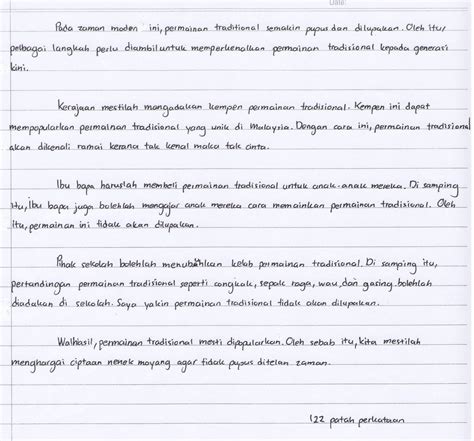 Date:
Pada zaman moden ini, permainan traditional semakin pupus dan dilupakan. Oleh itu,
pelbagai langkah perlu diambil untuk memperkenalkan permainan tradisional kepada generasi
kini.
Kerajaan mestilah mengadakan kempen permainan tradisional. Kempen ini dapat
mempopularkan permainan tradisional yang unik di Malaysia. Dengan cara ini, permainan tradisional
akan dikenali ramai kerana tak kenal maka tak cinta.
Ibu bapa haruslah membeli permainan tradisional untuk anak-anak mereka. Di samping
itu, ibu bapa juga bolehlah mengajar anak mereka cara memainkan permainan tradisional. Oleh
itu, permainan ini tidak akan dilupakan.
Pihak sekolah bolehlah menubuhkan kelab permainan tradisional. Di samping itu,
pertandingan permainan tradisional seperti congkak, sepak raga, wau, dan gasing bolehlah
diadakan di sekolah. Saya yakin permainan tradisional tidak akan dilupakan.
Walhasil, permainan tradisional mesti dipopularkan. Oleh sebab itu, kita mestilah
menghargai ciptaan nenek moyang agar tidak pupus ditelan zaman.
122 patah perkataan